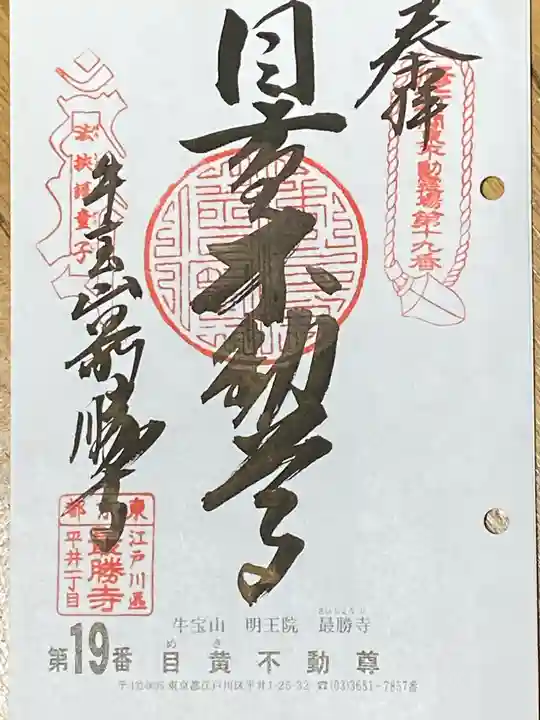 奉拝
関東三十六不動霊場第十九番
目黄不動尊
牛宝山最勝寺
東京都
江戸川區
最勝寺
平井一丁目
牛宝山 明王院 最勝寺
さいしょうじ
第19番 目黄不動尊
めき
東京都江戸川区平井1-25-32 ☎(03)3681-7857番